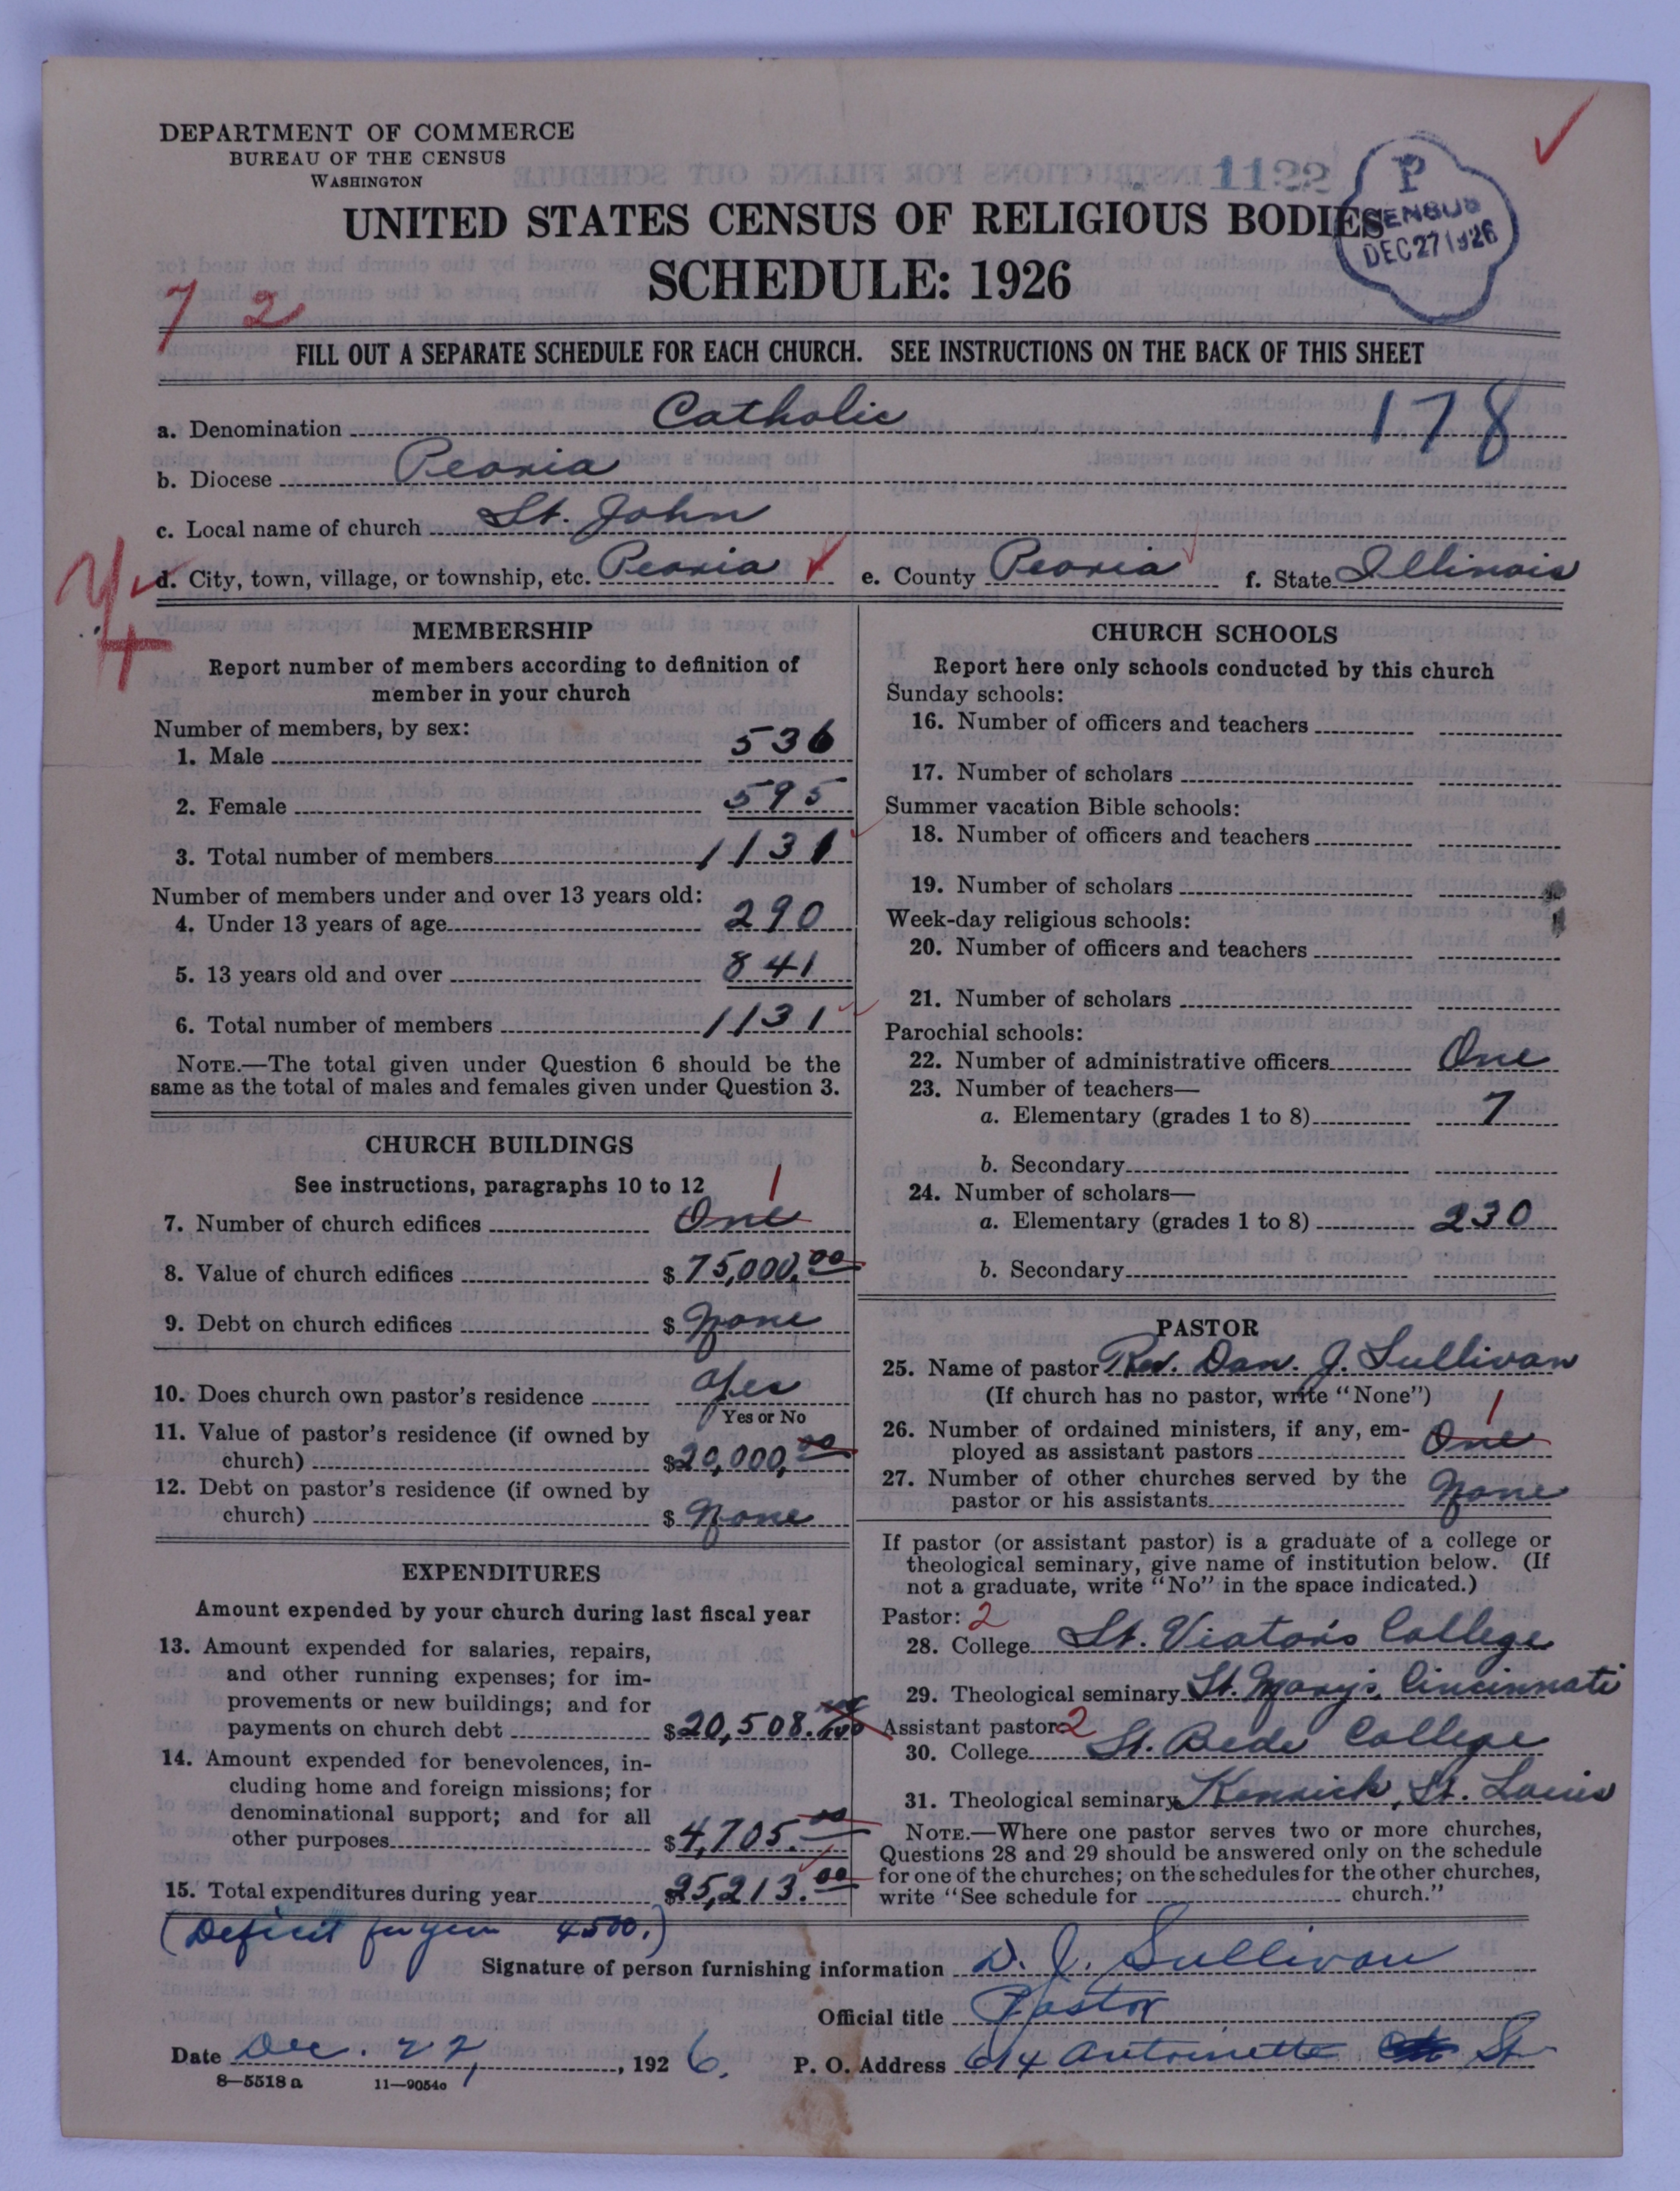 DEPARTMENT OF COMMERCE
BUREAU OF THE CENSUS
WASHINGTON
1122
P
CENSUS
DEC 27 1926
UNITED STATES CENSUS OF RELIGIOUS BODIES
SCHEDULE: 1926
7 2
FILL OUT A SEPARATE SCHEDULE FOR EACH CHURCH. SEE INSTRUCTIONS ON THE BACK OF THIS SHEET
178
a. Denomination Catholic
b. Diocese Peoria
c. Local name of church St. John
d. City, town, village, or township, etc. Peoria e. County Peoria f. State Illinois
MEMBERSHIP
Report number of members according to definition of
member in your church
Number of members, by sex:
1. Male 536
2. Female 595
3. Total number of members 1131
Number of members under and over 13 years old:
4. Under 13 years of age 290
5. 13 years old and over 841
6. Total number of members 1131
NOTE.—The total given under Question 6 should be the
same as the total of males and females given under Question 3.
CHURCH BUILDINGS
See instructions, paragraphs 10 to 12
1
7. Number of church edifices One
8. Value of church edifices $ 75,000.00
9. Debt on church edifices $ None
10. Does church own pastor's residence Yes
Yes or No
11. Value of pastor's residence (if owned by
church) $20,000.00
12. Debt on pastor's residence (if owned by
church) $ None
EXPENDITURES
Amount expended by your church during last fiscal year
13. Amount expended for salaries, repairs,
and other running expenses; for im-
provements or new buildings; and for
payments on church debt $20,508.
14. Amount expended for benevolences, in-
cluding home and foreign missions; for
denominational support; and for all
other purposes $4,705.00
15. Total expenditures during year $25,213.00
(Deficit for year 4500.)
CHURCH SCHOOLS
Report here only schools conducted by this church
Sunday schools:
16. Number of officers and teachers
17. Number of scholars
Summer vacation Bible schools:
18. Number of officers and teachers
19. Number of scholars
Week-day religious schools:
20. Number of officers and teachers
21. Number of scholars
Parochial schools:
22. Number of administrative officers One
23. Number of teachers—
a. Elementary (grades 1 to 8) 7
b. Secondary
24. Number of scholars—
a. Elementary (grades 1 to 8) 230
b. Secondary
PASTOR
25. Name of pastor Rev. Dan. J. Sullivan
(If church has no pastor, write "None")
1
26. Number of ordained ministers, if any, em-
ployed as assistant pastors One
27. Number of other churches served by the
pastor or his assistants None
If pastor (or assistant pastor) is a graduate of a college or
theological seminary, give name of institution below. (If
not a graduate, write "No" in the space indicated.)
Pastor: 2
28. College St. Viator's College
29. Theological seminary St. Mary's, Cincinnati
Assistant pastor: 2
30. College St. Bede College
31. Theological seminary Kenrick, St. Louis
NOTE.—Where one pastor serves two or more churches,
Questions 28 and 29 should be answered only on the schedule
for one of the churches; on the schedules for the other churches,
write "See schedule for church."
Signature of person furnishing information D. J. Sullivan
Official title Pastor
Date Dec. 22, 1926. P. O. Address 614 Antoinette St
8—5518 a 11—9054o